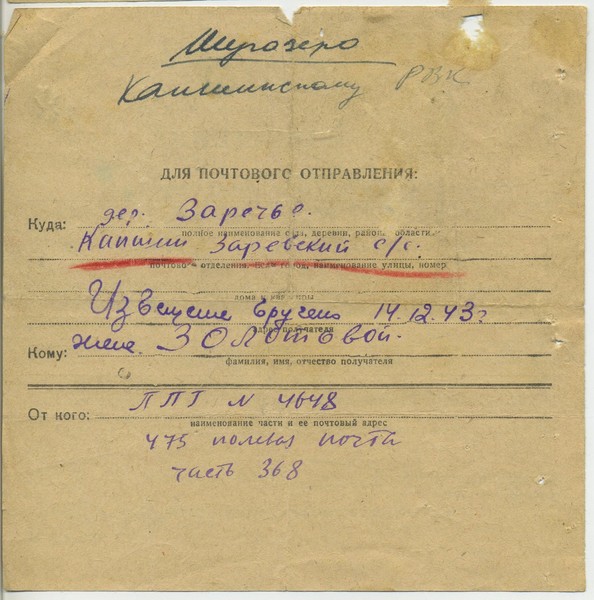 Шугозеро
Капшинскому РВК
ДЛЯ ПОЧТОВОГО ОТПРАВЛЕНИЯ:
Куда: дер. Заречье.
полное наименование села, деревни, район, область
Капшин Заревский с/с.
почтово отделения, наименование улицы, номер
дома и квартиры
Извещение вручено 14.12.43г
адрес получателя
Кому: жене. Золотовой.
фамилия, имя, отчество получателя
От кого: ППГ N 4648
наименование части и ее почтовый адрес
475 полевая почта
часть 368